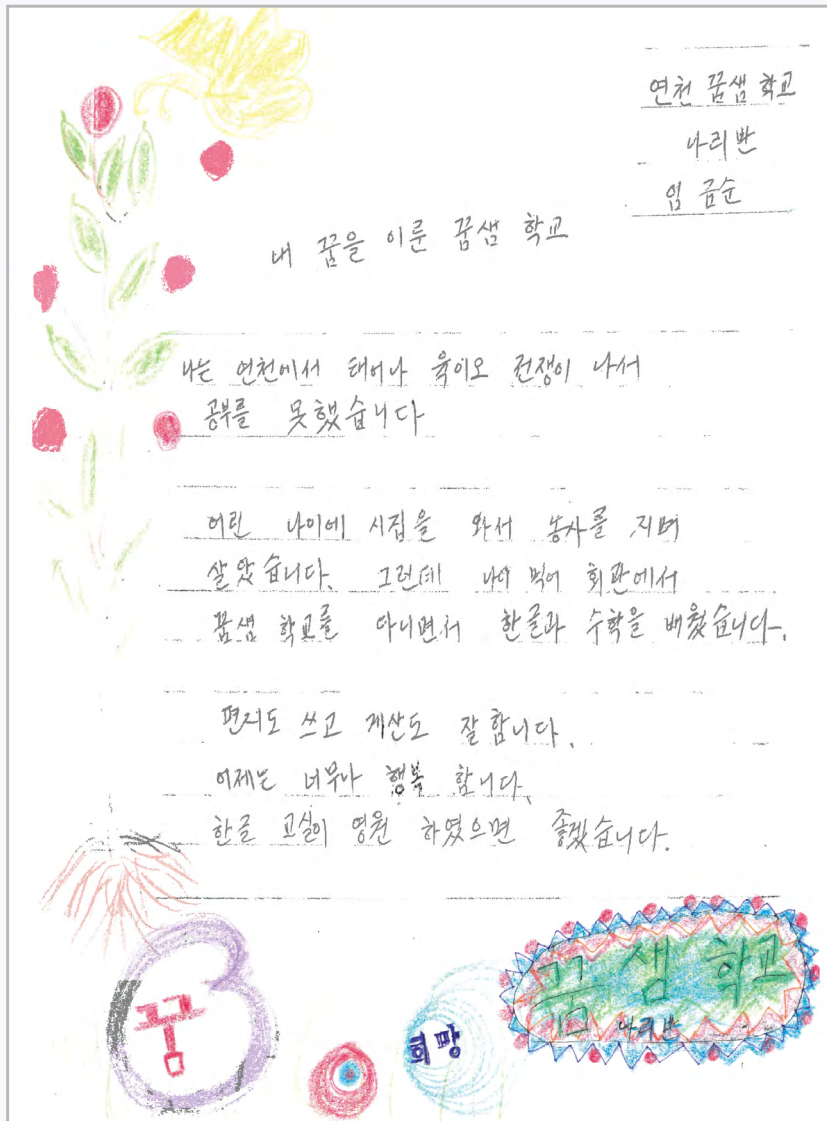 연천 꿈샘 학교
나리반
임 금순
내 꿈을 이룬 꿈샘 학교
나는 연천에서 태어나 육이오 전쟁이 나서
공부를 못했습니다
어린 나이에 시집을 와서 농사를 지며
살았습니다. 그런데 나이 먹어 회관에서
꿈샘 학교를 다니면서 한글과 수학을 배웠습니다.
편지도 쓰고 계산도 잘 합니다.
이제는 너무나 행복 합니다.
한글 교실이 영원 하였으면 좋겠습니다.
꿈
희망
꿈샘 학교
나리반